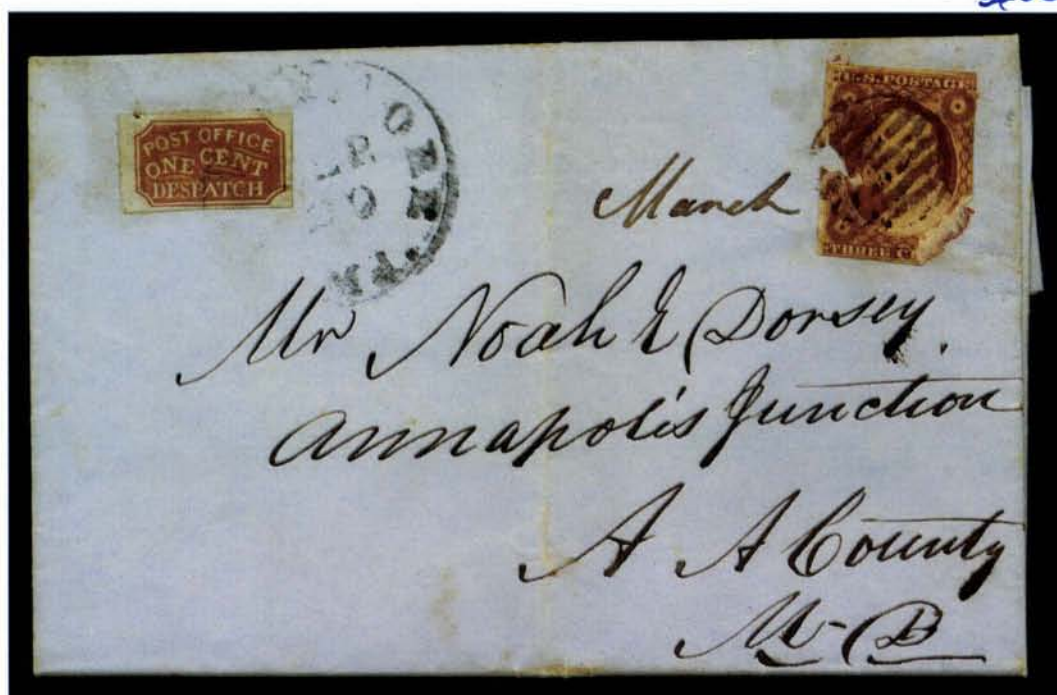 POST OFFICE
ONE CENT
DESPATCH
U.S. POSTAGE
THREE C
March
Mr Noah E Dorsey.
Annapolis Junction
A A County